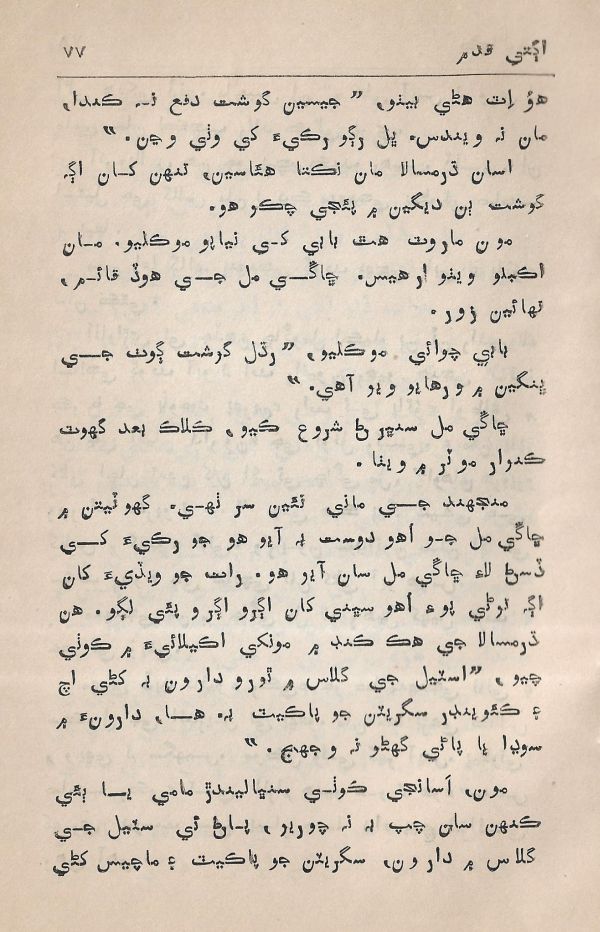 اڳتي قدم ۷۷
هؤ اِت هڻي بيٺو، ”جيسين گوشت دفع نہ ڪندا،
مان نہ ويندس. ڀل رڳو رڪيءَ کي وٺي وڃن.“
اسان ڌرمسالا مان نڪتا هئاسين، تنهن کان اڳہ
گوشت ٻن ديگين ۾ پڄي چڪو هو.
مون ماروت هٿ ٻاٻي کي نياپو موڪليو. مان
اڪيلو ويٺو ارهيس. چاڱي مل جي هوڏ قائم،
تهائين زور.
ٻاٻي چوائي موڪليو، ”رڌل گوشت ڳوٺ جي
ڀنگين ۾ ورهايو ويو آهي.“
چاڱي مل سنڀرڻ شروع ڪيو، ڪلاڪ بعد گهوٽ
ڪنوار موٽر ۾ ويٺا.
منجهند جي ماني نئين سر ٺهي. گهوٽيتن ۾
چاڱي مل جو اُهو دوست بہ آيو هو جو رڪيءَ کي
ڏسڻ لاءِ چاڱي مل سان آيو هو. رات جو ويڌيءَ کان
اڳہ توڻي پوءِ اُهو سڀني کان اڳرو اڳرو پئي لڳو. هن
ڌرمسالا جي هڪ ڪنڊ ۾ مونکي اڪيلائيءَ ۾ کوٺي
چيو، ”اسٽيل جي گلاس ۾ ٿورو دارون بہ کڻي اچ
۽ ڪئوينڊر سگريٽن جو پاڪيٽ بہ. ها، دارونءَ ۾
سوڊا يا پاڻي گهڻو نہ وجهج.“
مون، اَسانجي کوٺي سنڀاليندڙ مامي يا ٻئي
ڪنهن سان چپ بہ نہ چوريو، پاڻ ئي سٽيل جي
گلاس ۾ دارون، سگريٽن جو پاڪيٽ ۽ ماچيس کڻي